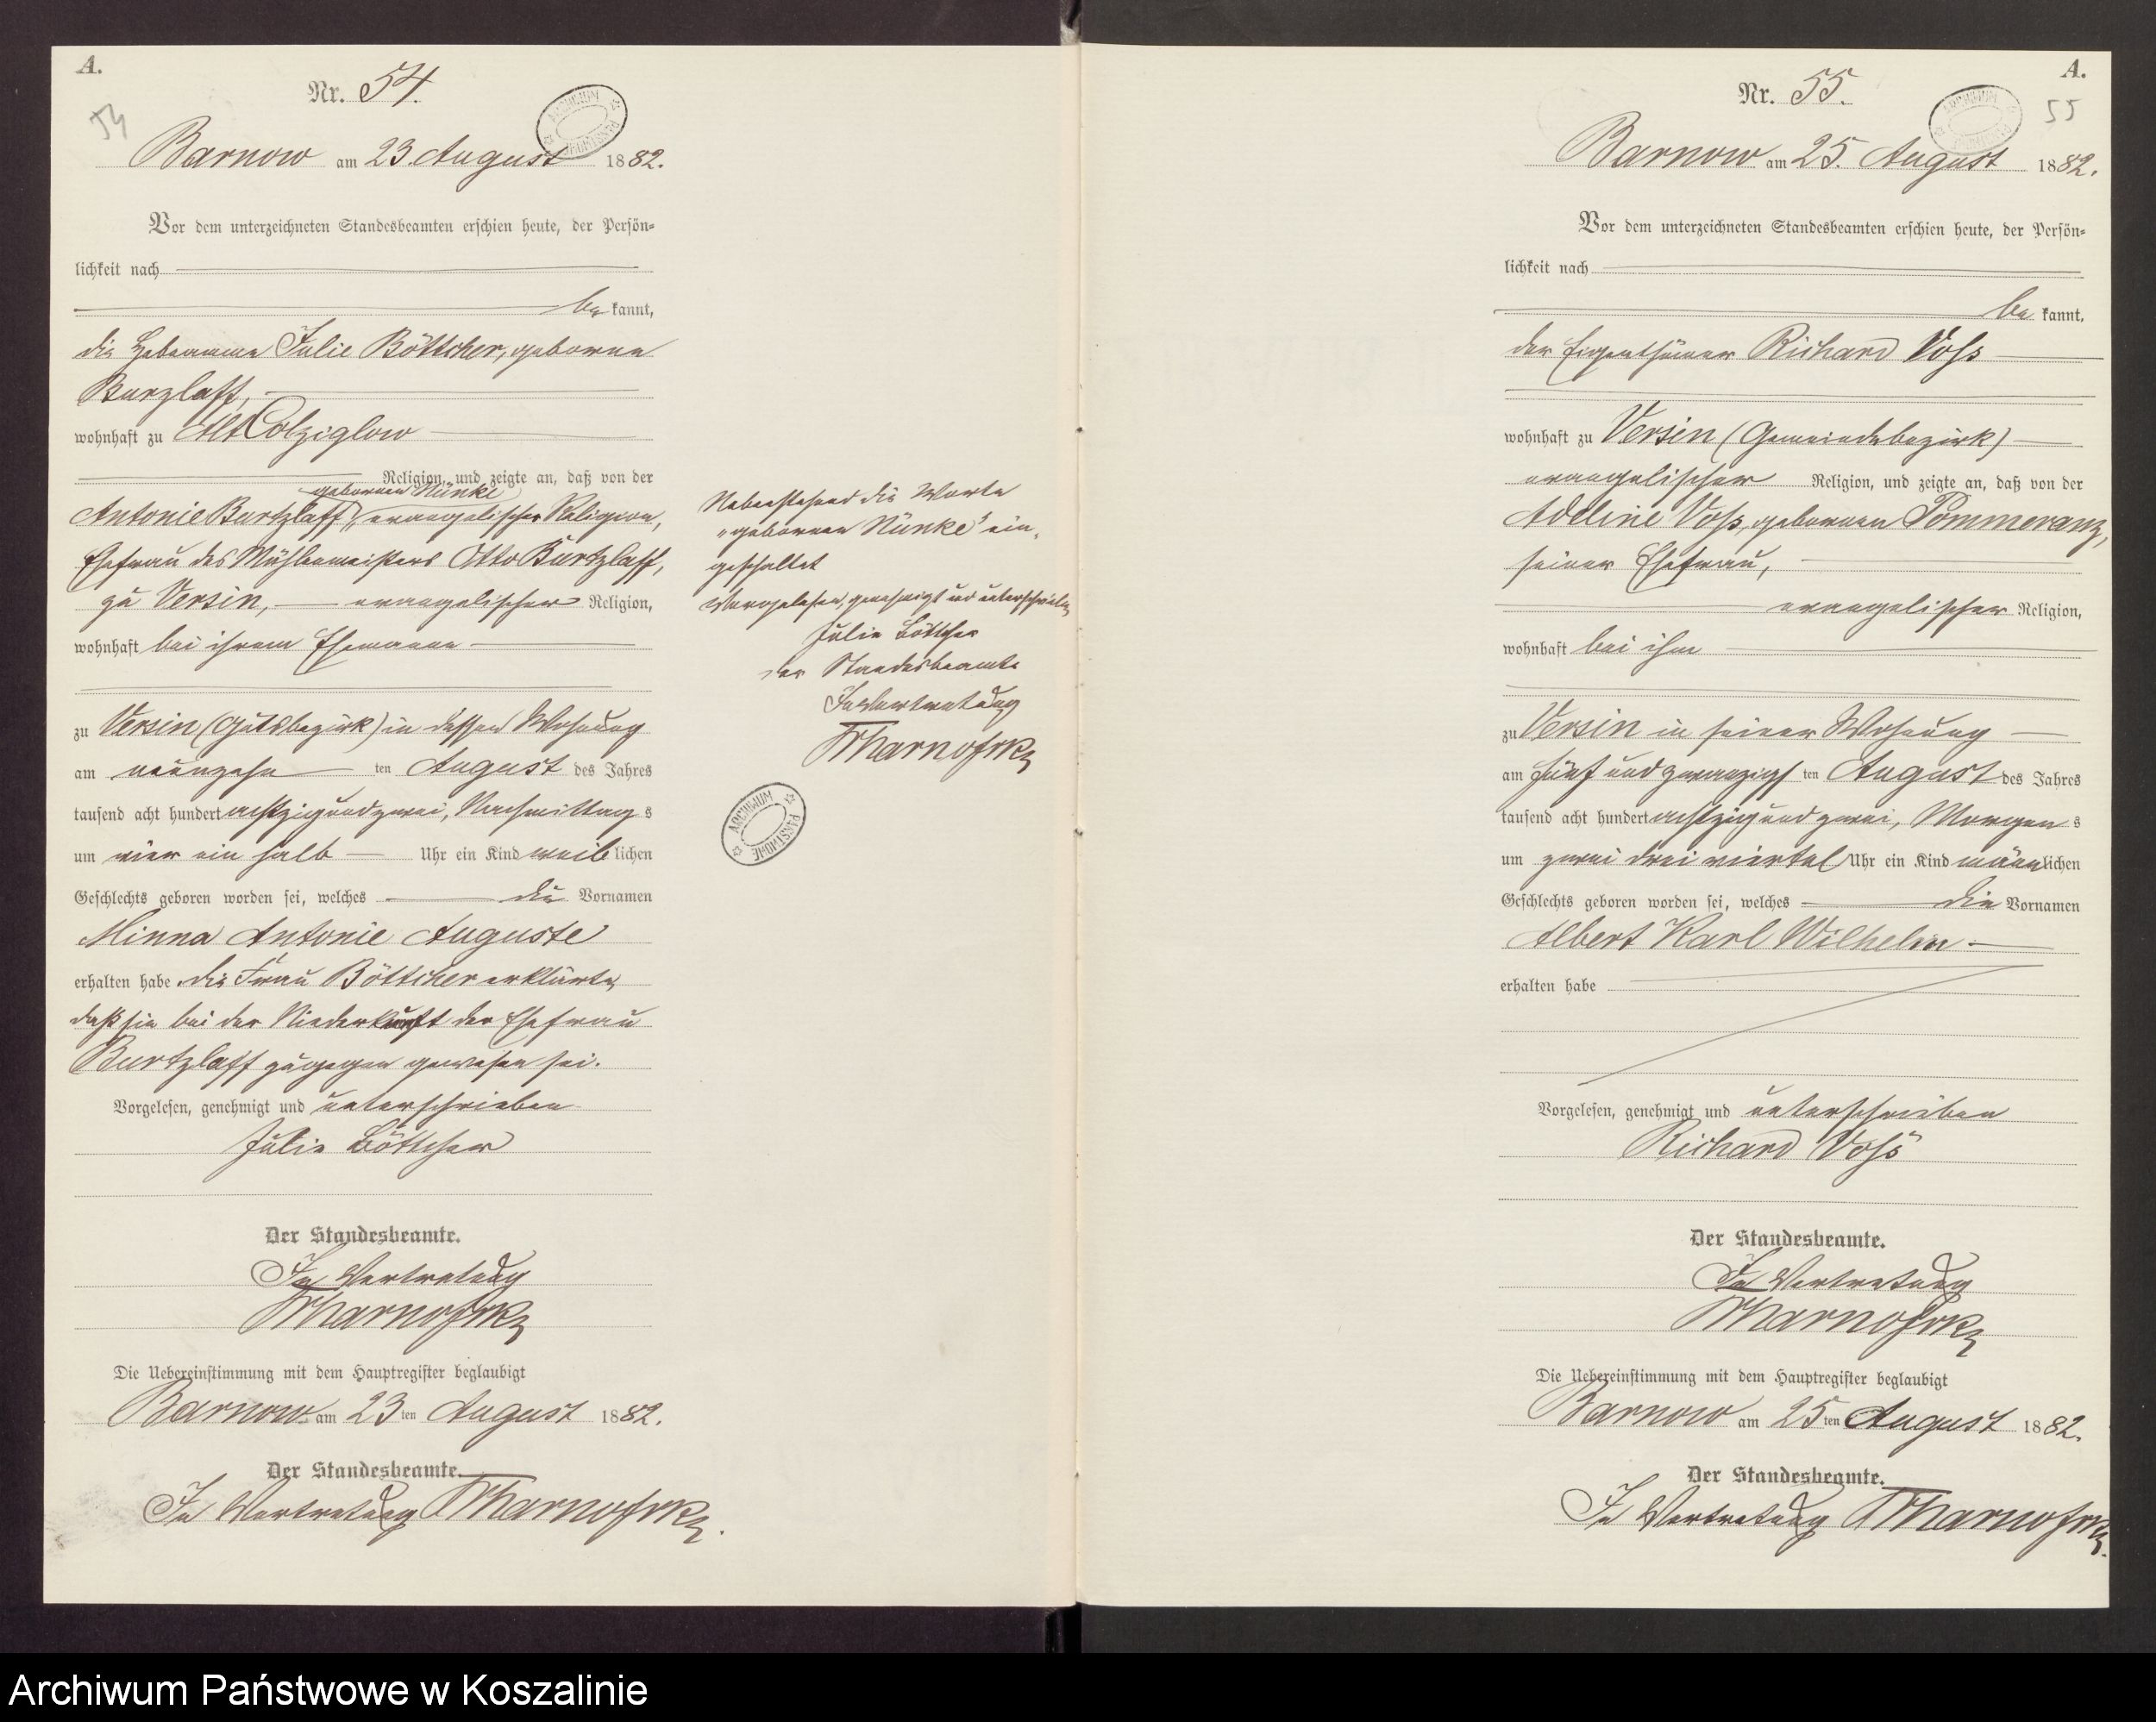 A.
Nr. 54.
54
ARCHIWUM PAŃSTWOWE
Barnow am 23. August 1882.
Vor dem unterzeichneten Standesbeamten erschien heute, der Persön-
lichkeit nach
be kannt,
die Hebeamme Julie Böttcher, geborene
Burzlaff,
wohnhaft zu Alt Colziglow
Religion, und zeigte an, daß von der
geborenen Nünke
Antonie Burtzlaff, evangelischer Religion,
Ehefrau des Mühlenmeisters Otto Burtzlaff,
zu Versin, evangelischer Religion,
wohnhaft bei ihrem Ehemanne
zu Versin (Gutsbezirk) in dessen Wohnung
am neunzehn ten August des Jahres
tausend acht hundert achtzig und zwei, Nachmittag s
um vier ein halb Uhr ein Kind weib lichen
Geschlechts geboren worden sei, welches die Vornamen
Minna Antonie Auguste
erhalten habe die Frau Böttcher erklärte,
daß sie bei der Niederkunft der Ehefrau
Burtzlaff zugegen gewesen sei.
Vorgelesen, genehmigt und unterschrieben
Julie Böttcher
Der Standesbeamte.
In Vertretung
Die Uebereinstimmung mit dem Hauptregister beglaubigt
Barnow am 23 ten August 1882.
Der Standesbeamte.
In Vertretung
Nebenstehend die Worte
„geborenen Nünke" ein-
geschaltet
Vorgelesen, genehmigt und unterschrieben
Julie Böttcher
Der Standesbeamte
In Vertretung
ARCHIWUM PAŃSTWOWE
A.
Nr. 55.
55
ARCHIWUM PAŃSTWOWE
Barnow am 25. August 1882.
Vor dem unterzeichneten Standesbeamten erschien heute, der Persön-
lichkeit nach
be kannt,
der Eigenthümer Richard Voß
wohnhaft zu Versin (Gemeindebezirk)
evangelischer Religion, und zeigte an, daß von der
Adeline Voß, geborenen Pommeranz,
seiner Ehefrau,
evangelischer Religion,
wohnhaft bei ihm
zu Versin in seiner Wohnung
am fünf und zwanzigs ten August des Jahres
tausend acht hundert achtzig und zwei, Morgen s
um zwei drei viertel Uhr ein Kind männ lichen
Geschlechts geboren worden sei, welches die Vornamen
Albert Karl Wilhelm
erhalten habe
Vorgelesen, genehmigt und unterschrieben
Richard Voß
Der Standesbeamte.
In Vertretung
Die Uebereinstimmung mit dem Hauptregister beglaubigt
Barnow am 25 ten August 1882.
Der Standesbeamte.
In Vertretung
Archiwum Państwowe w Koszalinie